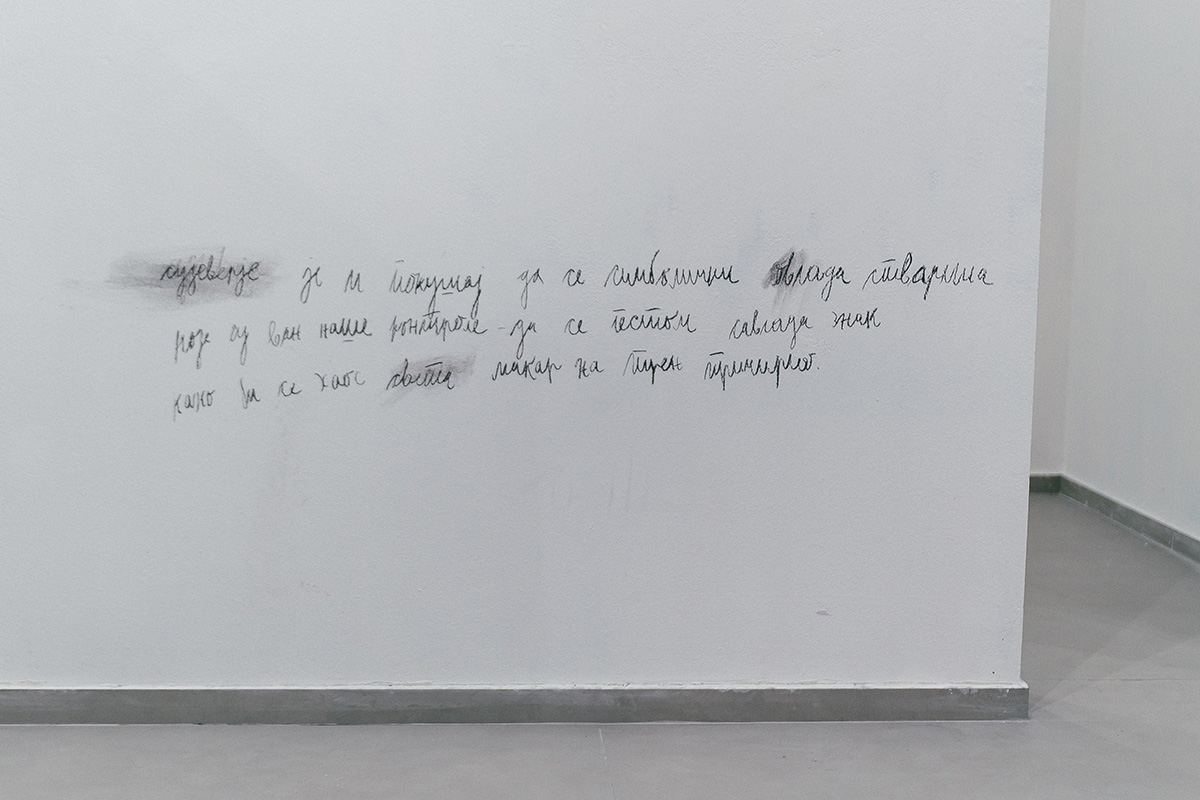 сујеверје је и покушај да се симболички овлада стварима
које су ван наше контроле - да се гестом савлада знак
како би се хаос света макар на трен причинио.